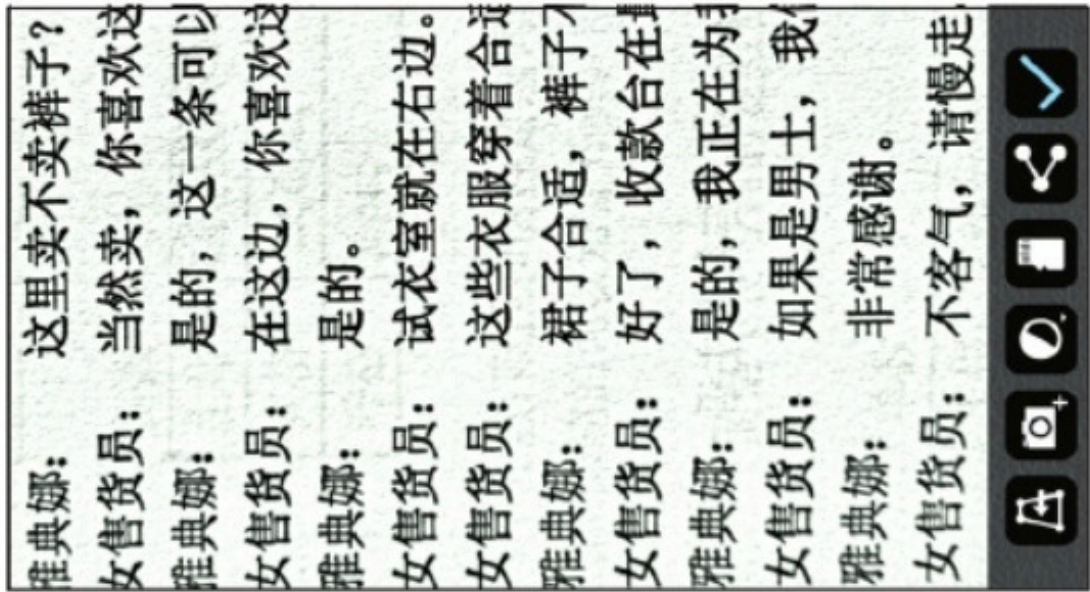 雅典娜： 这里卖不卖裤子？
女售货员： 当然卖，你喜欢这
雅典娜： 是的，这一条可以
女售货员： 在这边，你喜欢这
雅典娜： 是的。
女售货员： 试衣室就在右边。
女售货员： 这些衣服穿着合适
雅典娜： 裙子合适，裤子不
女售货员： 好了，收款台在
雅典娜： 是的，我正在为我
女售货员： 如果是男士，我们
雅典娜： 非常感谢。
女售货员： 不客气，请慢走